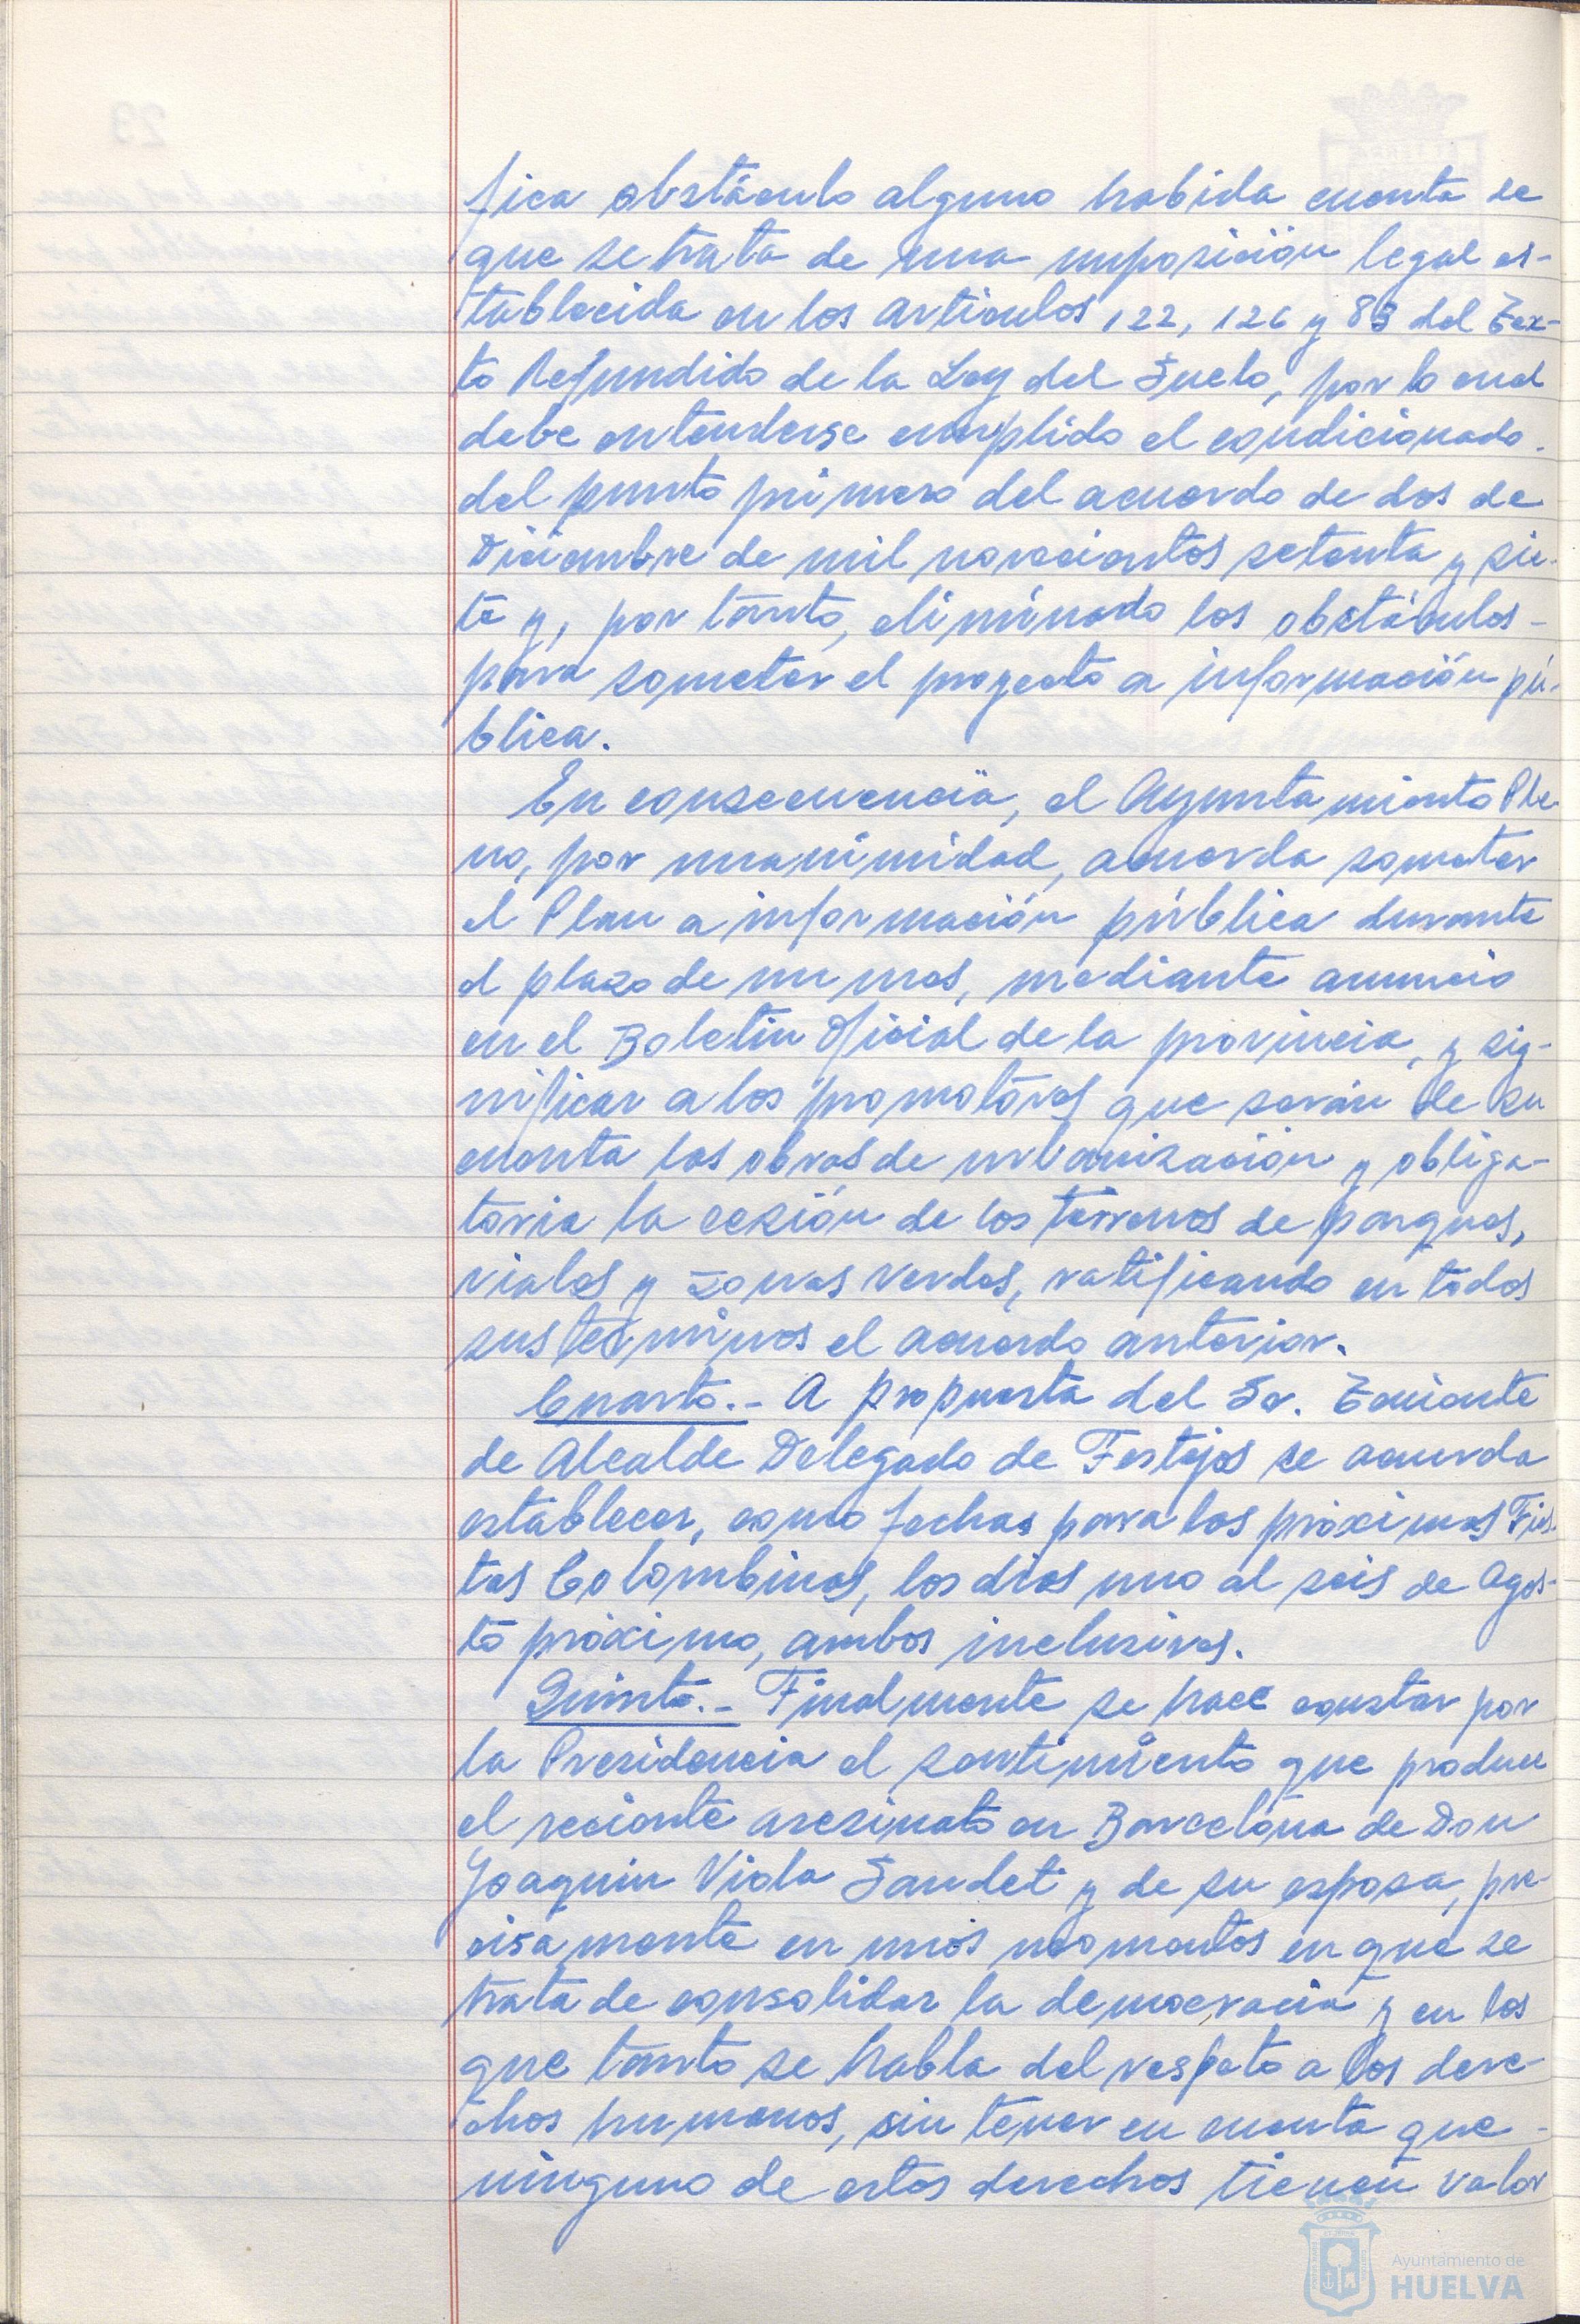 fica obstáculo alguno habida cuenta de
que se trata de una imposición legal es-
tablecida en los artículos 122, 126 y 83 del Tex-
to Refundido de la Ley del Suelo, por lo cual
debe entenderse cumplido el condicionado
del punto primero del acuerdo de dos de
Diciembre de mil novecientos setenta y sie-
te y, por tanto, eliminado los obstáculos-
para someter el proyecto a información pú-
blica.
En consecuencia, el Ayuntamiento Ple-
no, por unanimidad, acuerda someter
el Plan a información pública durante
el plazo de un mes, mediante anuncio
en el Boletín Oficial de la provincia, y sig-
nificar a los promotores que serán de su
cuenta las obras de urbanización y obliga-
toria la cesión de los terrenos de parques,
viales y zonas verdes, ratificando en todos
sus términos el acuerdo anterior.
Cuarto.- A propuesta del Sr. Teniente
de Alcalde Delegado de Festejos se acuerda
establecer, como fechas para las próximas Fies-
tas Colombinas, los días uno al seis de Agos-
to próximo, ambos inclusives.
Quinto.- Finalmente se hace constar por
la Presidencia el sentimiento que produce
el reciente asesinato en Barcelona de Don
Joaquín Viola Saudet y de su esposa, pre-
cisamente en unos momentos en que se
trata de consolidar la democracia y en los
que tanto se habla del respeto a los dere-
chos humanos, sin tener en cuenta que-
ninguno de estos derechos tienen valor
Ayuntamiento de
HUELVA